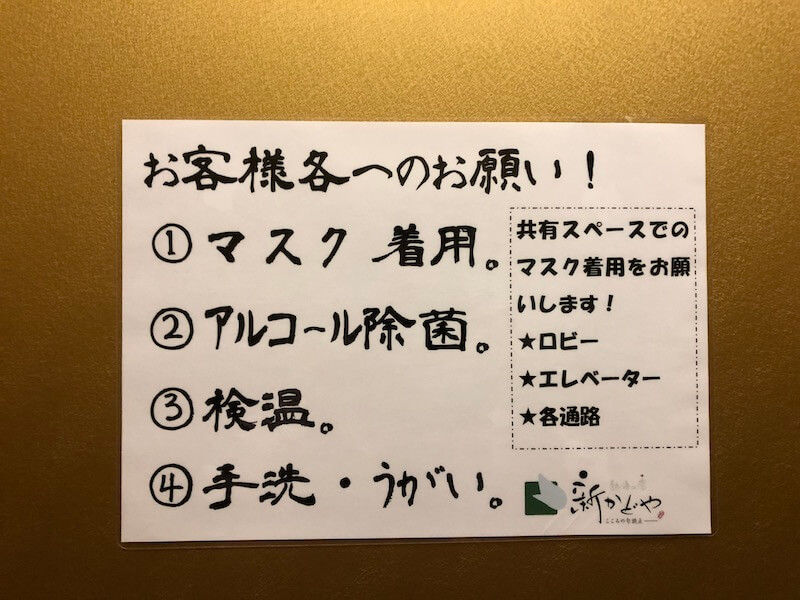 お客様各へのお願い!
① マスク 着用。
② アルコール除菌。
③ 検温。
④ 手洗・うがい。
共有スペースでの
マスク着用をお願
いします!
★ロビー
★エレベーター
★各通路
新かどや